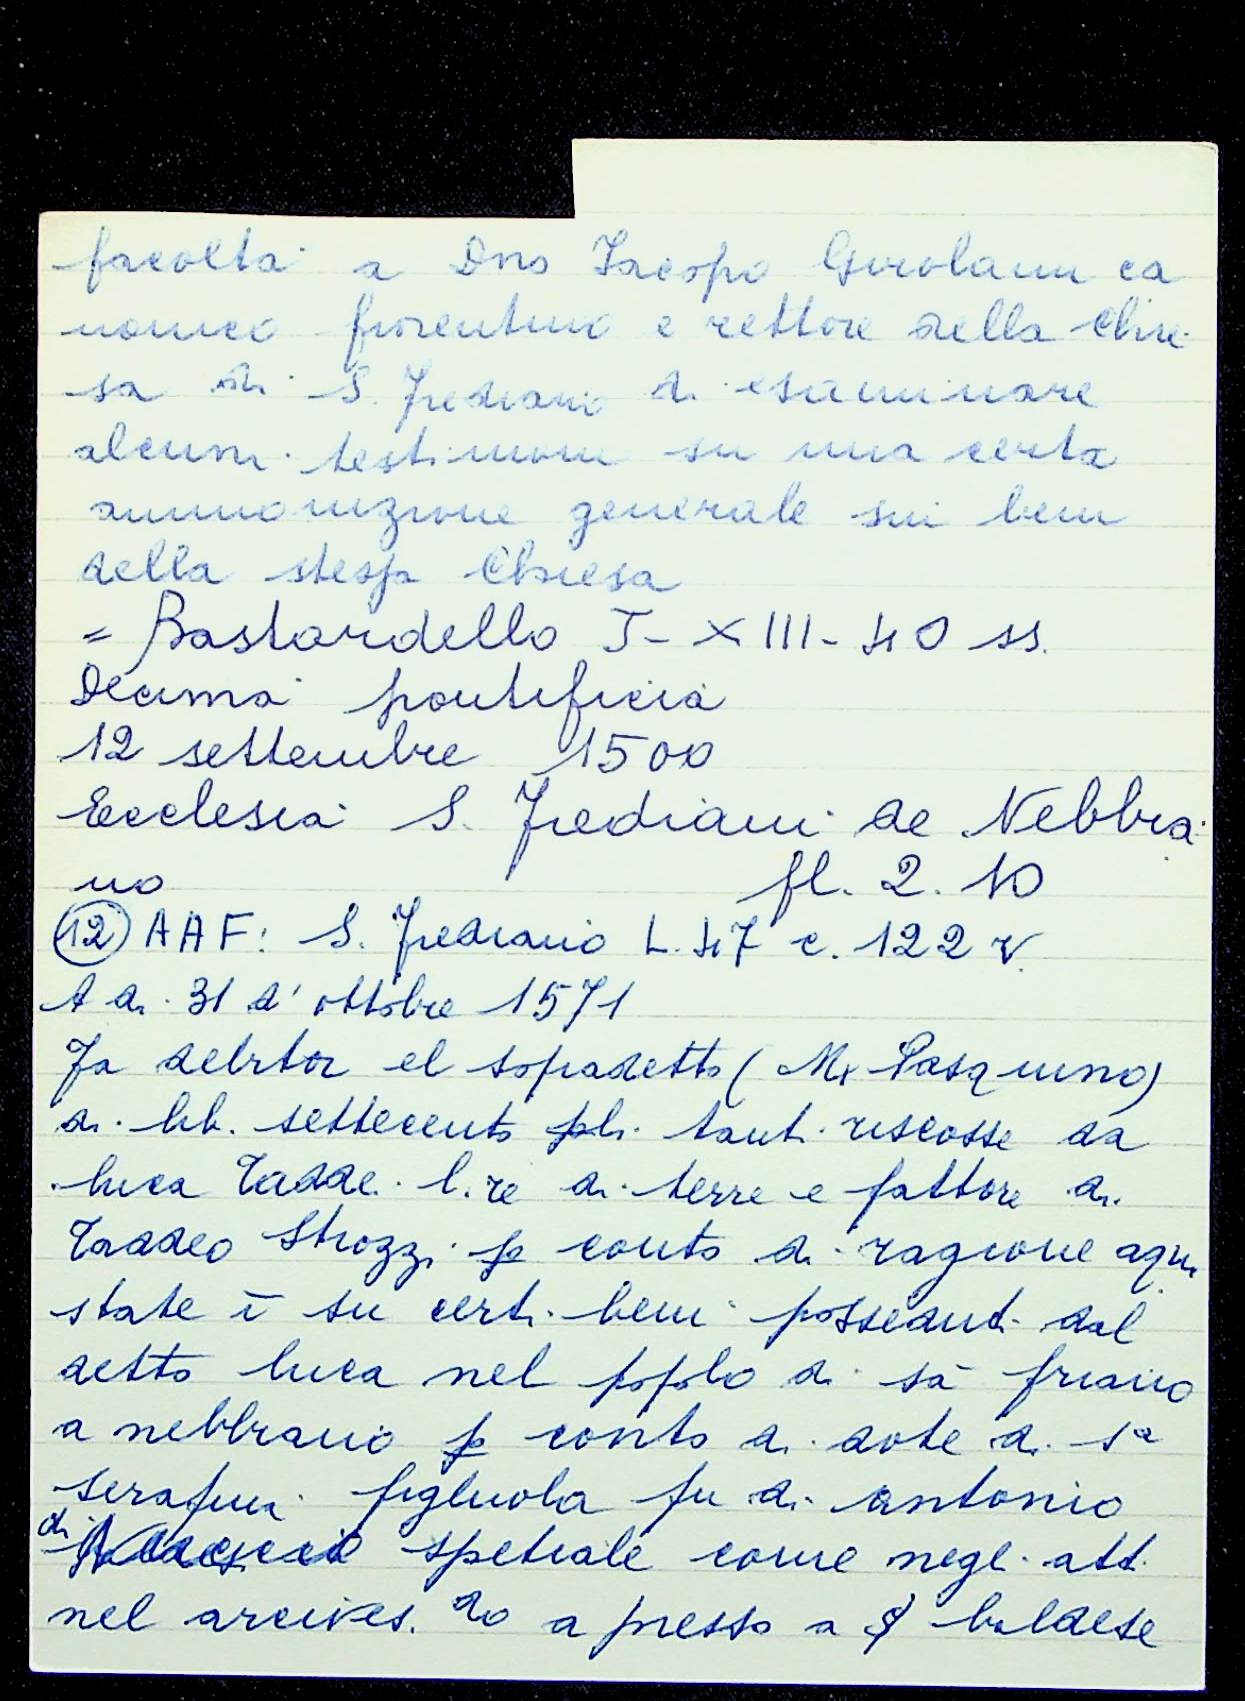 facolta a Dno Jacopo Girolami ca
nonico fiorentino e rettore della Chie
sa di S. Frediano di esaminare
alcuni testimoni su una certa
ammonizione generale sui beni
della stessa Chiesa
= Bastardello I - XIII - 40 ss.
Decima pontificia
12 settembre 1500
Ecclesia S. Frediani de Nebbia
no fl. 2. 10
(12) AAF: S. Frediano L. 47 c. 122 v
A di 31 d'ottobre 1571
Fa debitor el sopradetto (Mr Pasquino)
di lib. settecento pli tanti riscosse da
luca Taddei l.re di terre e fattore di
Taddeo Strozzi p conto di ragione aqui
state ī su certi beni posseduti dal
detto luca nel popolo di sā friano
a nebbiano p conto di dote di sa
serafina figluola fu di antonio
di spetiale come negl. atti
nel arcives. do apresso a baldese